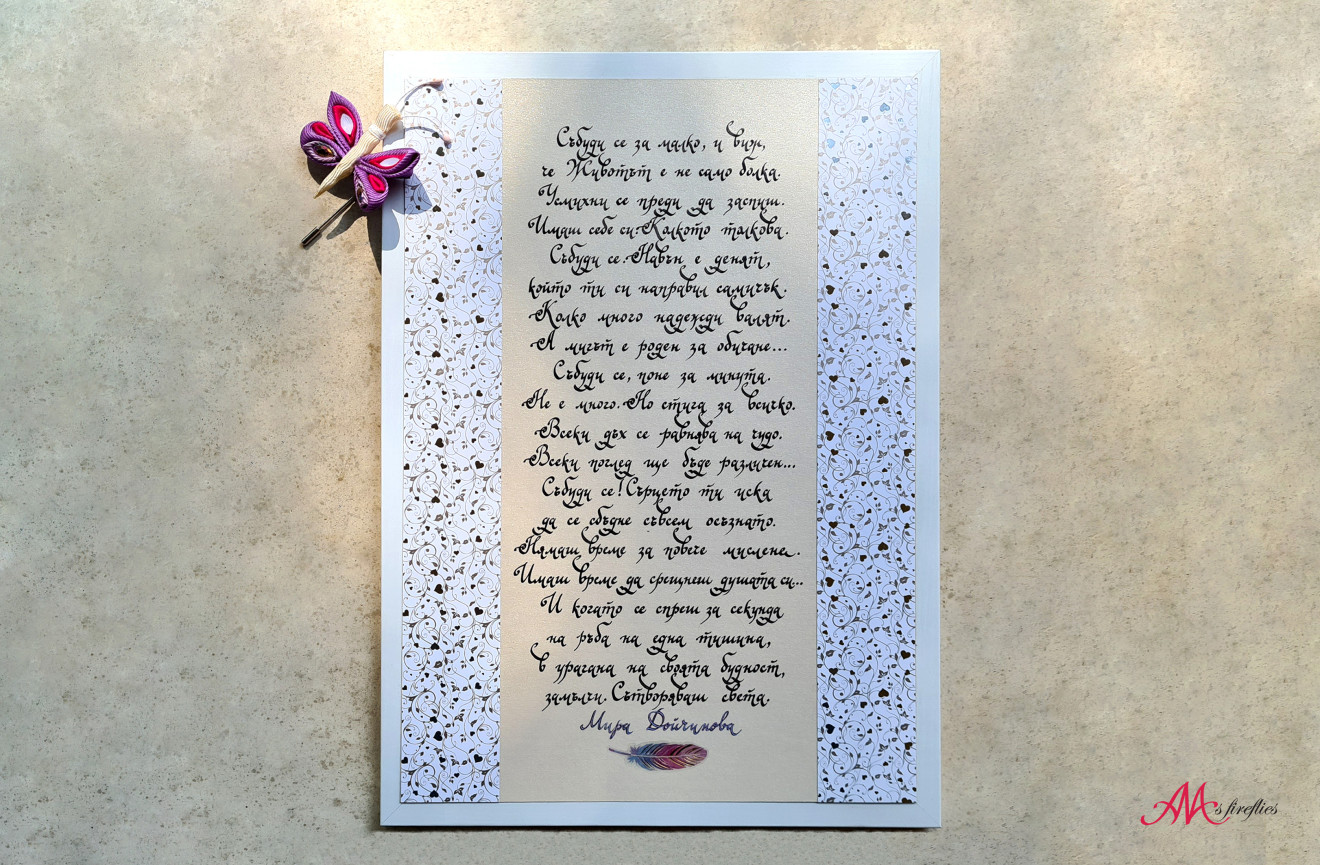 Събуди се за малко, и виж,
че Животът е не само болка.
Усмихни се преди да заспиш.
Имаш себе си. Колкото толкова.
Събуди се. Навън е денят,
който ти си направил самичък.
Колко много надежди валят.
А мигът е роден за обичане...
Събуди се, поне за минута.
Не е много. Но стига за всичко.
Всеки дъх се равнява на чудо.
Всеки поглед ще бъде различен...
Събуди се! Сърцето ти иска
да се сбъдне съвсем осъзнато.
Нямаш време за повече мислене.
Имаш време да срещнеш душата си...
И когато се спреш за секунда
на ръба на една тишина,
в урагана на своята будност,
замълчи. Сътворяваш света.
Мира Дойчинова
AA's fireflies